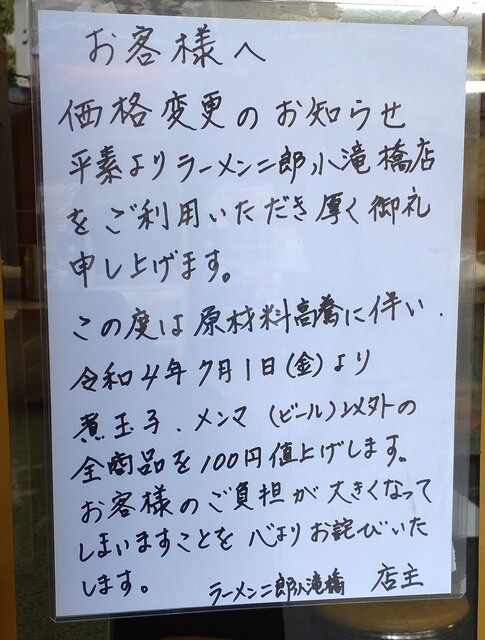 お客様へ
価格変更のお知らせ
平素よりラーメン二郎小滝橋店
をご利用いただき厚く御礼
申し上げます。
この度は原材料高騰に伴い、
令和4年7月1日(金)より
煮玉子、メンマ(ビール)以外の
全商品を100円値上げします。
お客様のご負担が大きくなって
しまいますことを心よりお詫びいた
します。 ラーメン二郎小滝橋 店主